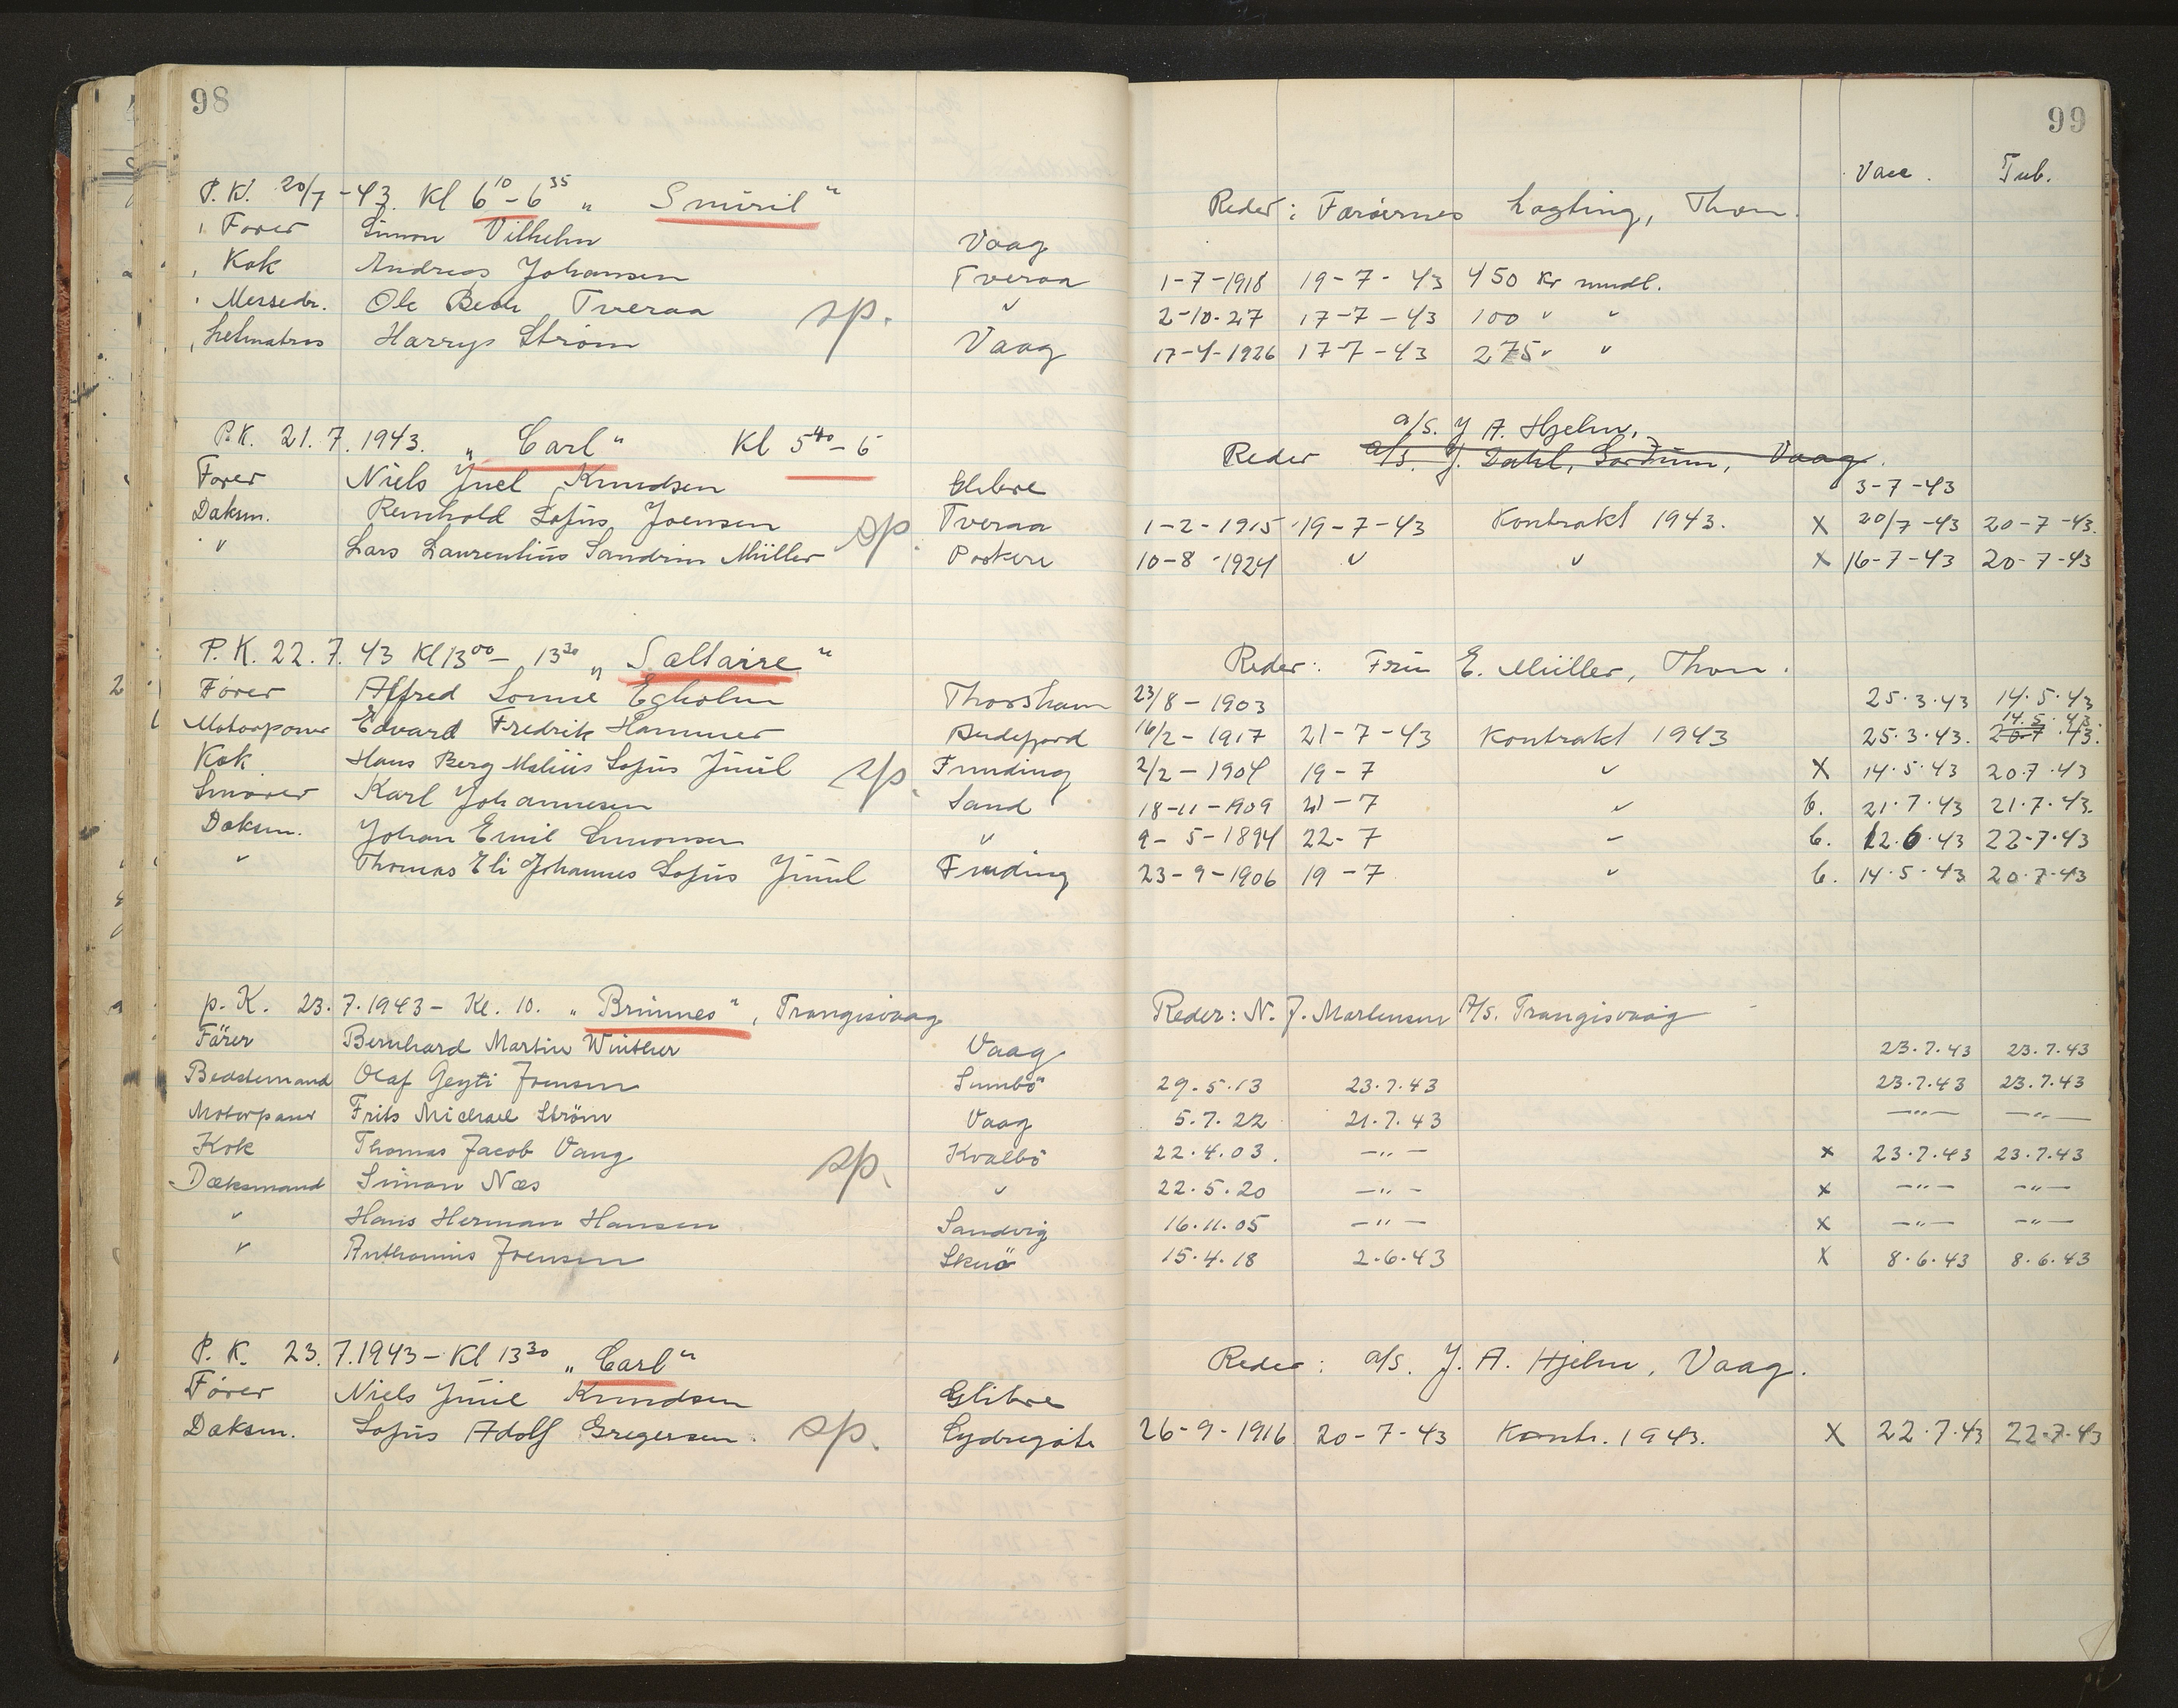 98
99
Vacc. Tub.
P.K. 20/7-43. Kl 6 10 - 6 35 „Smiril“ Reder: Færøernes Lagting, Thvn.
Fører Simon Vilhelm Vaag
Kok Andreas Johansen Tveraa 1-7-1918 19-7-43 450 Kr mndl.
Messedr. Ole Tveraa sp. " 2-10-27 17-7-43 100 " "
Letmatros Harrys Strøm Vaag 17-4-1926 17-7-43 275 " "
P.K. 21.7.1943. „Carl“ Kl 5 40 - 6
a/s. J A. Hjelm,
Reder a/s. J. Dahl, Vaag.
Fører Niels Juel Knudsen Glibre 3-7-43
Dæksm. Reinhold Sofus Joensen sp. Tveraa 1-2-1915 19-7-43 Kontrakt 1943. X 20/7-43 20-7-43.
" Lars Laurentius Sandrius Müller Porkeri 10-8-1924 " " X 16-7-43 20-7-43
P.K. 22.7.43 Kl 13 00 - 13 30 „Saltaire“ Reder: Frú E. Müller, Thvn.
Fører Alfred Egholm Thorshavn 23/8-1903 25.3.43 14.5.43
14.5.43.
Motorpasser Edvard Fredrik Hammer Andefjord 16/2-1917 21-7-43 Kontrakt 1943 25.3.43. 20.7.43.
Kok Hans Berg Malius Sofus Júúl sp. Funding 2/2-1904 19-7 " X 14.5.43 20.7.43
Smører Karl Johannesen Sand 18-11-1909 21-7 " b. 21.7.43 21.7.43.
Dæksm. Johan Emil Simonsen " 9-5-1894 22-7 " b. 12.6.43 22-7-43
" Thomas Eli Johannes Sofus Júúl Funding 23-9-1906 19-7 " b. 14.5.43 20.7-43
P.K. 23.7.1943- Kl. 10. „Brúnnes“, Trangisvaag Reder: N. J. Mortensen A/s. Trangisvaag
Fører Bernhard Martin Winther Vaag 23.7.43 23.7.43
Bedstemand Olaf Geyti Joensen Sumbö 29.5.13 23.7.43 23.7.43 23.7.43
Motorpasser Frits Michael Ström Vaag 5.7.22 21.7.43 —"— —"—
Kok Thomas Jacob Vang sp. Kvalbö 22.4.03. —"— x 23.7.43 23.7.43
Dæksmand Simon Næs " 22.5.20 —"— x —"— —"—
" Hans Herman Hansen Sandvig 16.11.05 —"— x —"— —"—
" Anthonius Joensen Skuö 15.4.18 2.6.43 X 8.6.43 8.6.43
P.K. 23.7.1943 - Kl 13 30 „Carl“ Reder: a/s. J. A. Hjelm, Vaag.
Fører Niels Júúl Knudsen Glibre
Dæksm. Sofus Adolf Gregersen. sp. Sydregöte 26-9-1916 20-7-43 Kontr. 1943. X 22.7.43 22.7.43